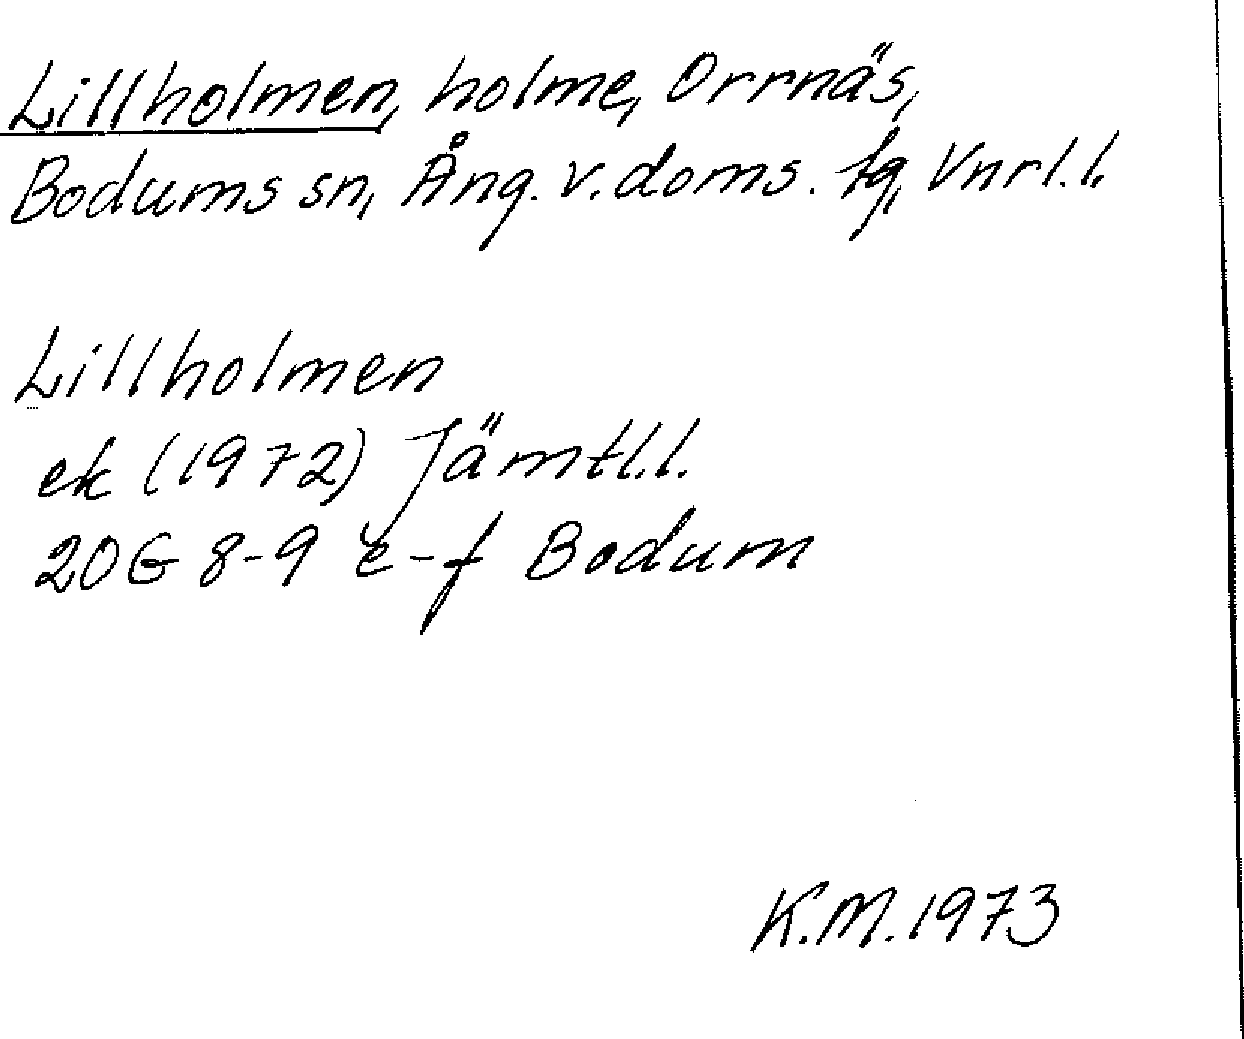 Lillholmen, holme, Orrnäs,
Bodums sn, Ång. v. doms. tg, Vnrl. l.
Lillholmen
ek (1972) Jämtl.l.
20G 8-9 e-f Bodum
K.M. 1973